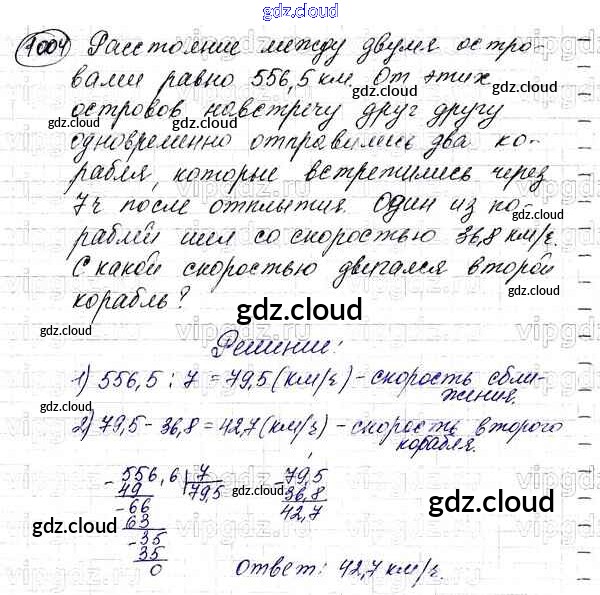 gdz.cloud
1004 Расстояние между двумя остро-
вами равно 556,5 км. От этих
островов навстречу друг другу
одновременно отправились два ко-
рабля, которые встретились через
7ч после отплытия. Один из ко-
раблей шел со скоростью 36,8 км/ч.
С какой скоростью двигался второй
корабль?
gdz.cloud
Решение:
1) 556,5 : 7 = 79,5 (км/ч) - скорость сбли-
жения.
2) 79,5 - 36,8 = 42,7 (км/ч) - скорость второго
корабля.
- 556,6 | 7
49 79,5
- 66
63
- 35
35
0
- 79,5
36,8
42,7
gdz.cloud
Ответ: 42,7 км/ч.